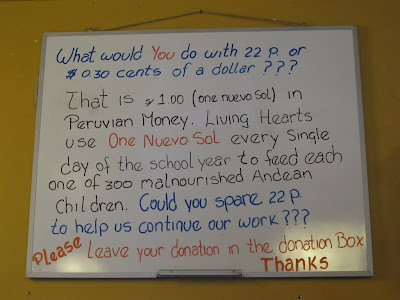 What would You do with 22 p. or
$ 0.30 cents of a dollar ???
That is s/ 1.00 (one nuevo sol) in
Peruvian Money. Living Hearts
use One Nuevo Sol every single
day of the school year to feed each
one of 300 malnourished Andean
Children. Could you spare 22 p.
to help us continue our work???
Please Leave your donation in the donation Box
Thanks